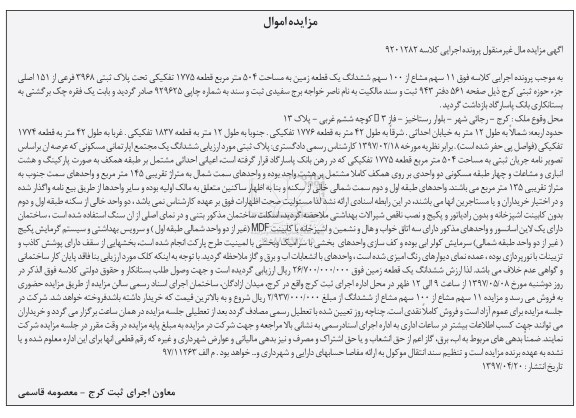 مزایده اموال
آگهی مزایده مال غیرمنقول پرونده اجرایی کلاسه ۹۲۰۱۲۸۲
به موجب پرونده اجرایی کلاسه فوق ۱۱ سهم مشاع از ۱۰۰ سهم ششدانگ یک قطعه زمین به مساحت ۵۰۴ متر مربع قطعه ۱۷۷۵ تفکیکی تحت پلاک ثبتی ۳۹۶۸ فرعی از ۱۵۱ اصلی
جزء حوزه ثبتی کرج ذیل صفحه ۵۶۱ دفتر ۹۴۳ ثبت و سند مالکیت به نام ناصر خواجه برج سفیدی ثبت و سند به شماره چاپی ۹۲۹۶۲۵ صادر گردید و بابت یک فقره چک برگشتی به
بستانکاری بانک پاسارگاد بازداشت گردید.
محل وقوع ملک : کرج - رجائی شهر - بلوار رستاخیز - فاز ۳ کوچه ششم غربی - پلاک ۱۳
حدود اربعه: شمالاً به طول ۱۲ متر به خیابان احداثی. شرقاً به طول ۴۲ متر به قطعه ۱۷۷۶ تفکیکی. جنوبا به طول ۱۲ متر به قطعه ۱۸۳۷ تفکیکی. غربا به طول ۴۲ متر به قطعه ۱۷۷۴
تفکیکی (فواصل پی حفر شده است). برابر نظریه مورخه ۱۳۹۷/۰۲/۱۸ کارشناس رسمی دادگستری، پلاک ثبتی مورد ارزیابی ششدانگ یک مجتمع آپارتمانی مسکونی که عرصه آن براساس
تصویر نامه جریان ثبتی به مساحت ۵۰۴ متر مربع قطعه ۱۷۷۵ تفکیکی که در رهن بانک پاسارگاد قرار گرفته است، اعیانی احداثی مشتمل بر طبقه همکف به صورت پارکینگ و هشت
انباری و مشاعات و چهار طبقه مسکونی دو واحدی بر روی همکف کاملا مشتمل بر هشت واحد بوده و واحدهای سمت شمال به متراژ تقریبی ۱۴۵ متر مربع و واحدهای سمت جنوب به
متراژ تقریبی ۱۳۵ متر مربع می باشند. واحدهای طبقه اول و دوم سمت شمالی خالی از سکنه و بنا به اظهار ساکنین متعلق به مالک اولیه بوده و سایر واحدها از طریق بیع نامه واگذار شده
و در اختیار خریداران و یا مستاجرین آنها می باشند، در این رابطه اسنادی ارائه نشد لذا مسئولیت صحت اظهارات فوق بر عهده کارشناس نمی باشد، دو واحد خالی از سکنه طبقه اول و دوم
بدون کابینت آشپزخانه و بدون رادیاتور و پکیج و نصب ناقص شیرآلات بهداشتی ملاحظه گردید، اسکلت ساختمان مذکور بتنی و در نمای اصلی از آن سنگ استفاده شده است، ساختمان
دارای یک لاین آسانسور و واحدهای مذکور دارای سه اتاق خواب و هال و نشمین و آشپزخانه با کابینت MDF (غیر از دو واحد شمالی طبقه اول) و سرویس بهداشتی و سیستم گرمایش پکیج
(غیر از دو واحد طبقه شمالی) سرمایش کولر آبی بوده و کف سازی واحدهای بخشی با سرامیک و بخشی با لمینیت طرح پارکت انجام شده است، بخشهایی از سقف دارای پوشش کاذب و
تزیینات با نورپردازی بوده، عمده نمای دیوارهای رنگ آمیزی شده است، واحدهای با انشعابات آب و برق و گاز ملاحظه گردید. با توجه به اینکه کلک مورد ارزیابی بنا فاقد پایان کار ساختمانی
و گواهی عدم خلاف می باشد. لذا ارزش ششدانگ یک قطعه زمین فوق ۲۶/۷۰۰/۰۰۰/۰۰۰ ریال ارزیابی گردیده است و جهت وصول طلب بستانکار و حقوق دولتی کلاسه فوق الذکر در
روز دوشنبه مورخ ۱۳۹۷/۰۵/۰۸ از ساعت ۹ الی ۱۲ ظهر در محل اداره اجرای ثبت کرج واقع در کرج، میدان آزادگان، ساختمان اجرای اسناد رسمی سالن مزایده از طریق مزایده حضوری
به فروش می رسد و مزایده ۱۱ سهم مشاع از ۱۰۰ سهم مشاع از ششدانگ از مبلغ ۲/۹۳۷/۰۰۰/۰۰۰ ریال شروع و به بالاترین قیمت که خریدار داشته باشد فروخته خواهد شد. شرکت در
جلسه مزایده برای عموم آزاد است و فروش کاملا نقدی است. چنانچه روز تعیین شده با تعطیل رسمی مصادف گردد بعد از تعطیلی جلسه مزایده در همان ساعت برگزار می گردد و خریداران
می توانند جهت کسب اطلاعات بیشتر در ساعات اداری به اداره اجرای اسناد رسمی به نشانی بالا مراجعه و جهت شرکت در مزایده به مبلغ پایه مزایده در وقت مقرر در جلسه مزایده شرکت
نمایند. ضمناً بدهی های مربوط به آب، برق، گاز اعم از حق انشعاب و یا حق اشتراک و مصرف و نیز بدهی مالیاتی و عوارض شهرداری و غیره که رقم قطعی آنها برای این اداره معلوم شده و یا
نشده به عهده برنده مزایده است و تنظیم سند انتقال موکول به ارائه مفاصا حسابهای دارایی و شهرداری و... خواهد بود. م الف ۹۷/۱۱۲۶۳
تاریخ انتشار: ۱۳۹۷/۰۴/۲۰
معاون اجرای ثبت کرج - معصومه قاسمی